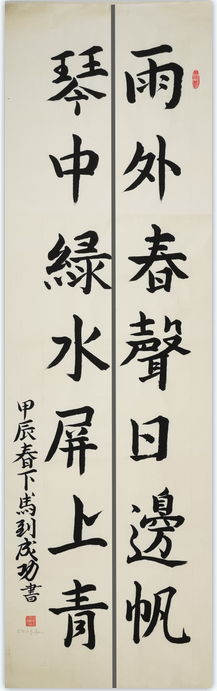 雨外春聲日邊帆
琴中綠水屏上青
甲辰春下馬到成功書